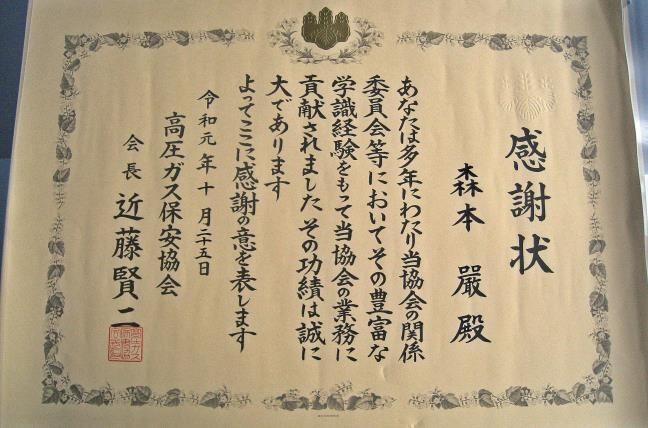 感謝状
森本 嚴 殿
あなたは多年にわたり当協会の関係
委員会等においてその豊富な
学識経験をもって当協会の業務に
貢献されました その功績は誠に
大であります
よってここに感謝の意を表します
令和元年十月二十五日
高圧ガス保安協会
会長 近藤賢二